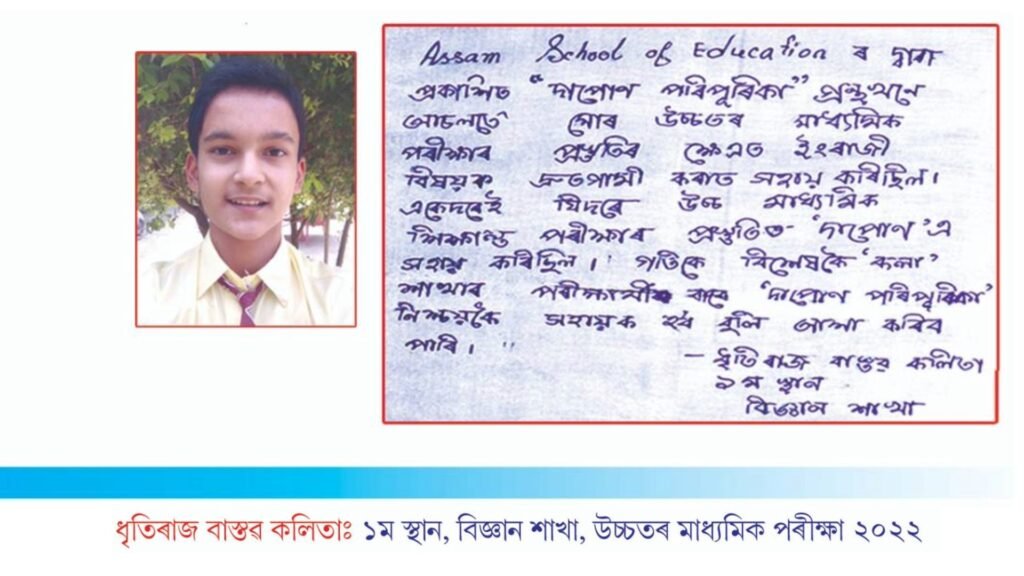 Assam School of Education ৰ দ্বাৰা
প্ৰকাশিত "দাপোণ পৰিপূৰিকা" গ্ৰন্থখনে
আচলতে মোৰ উচ্চতৰ মাধ্যমিক
পৰীক্ষাৰ প্ৰস্তুতিৰ ক্ষেত্ৰত ইংৰাজী
বিষয়ক দ্ৰুতগামী কৰাত সহায় কৰিছিল।
একেদৰেই যিদৰে উচ্চ মাধ্যমিক
শিক্ষান্ত পৰীক্ষাৰ প্ৰস্তুতিত 'দাপোণ'এ
সহায় কৰিছিল। গতিকে বিশেষকৈ 'কলা'
শাখাৰ পৰীক্ষাৰ্থীৰ বাবে 'দাপোণ পৰিপূৰিকা'
নিশ্চয়কৈ সহায়ক হ'ব বুলি আশা কৰিব
পাৰি।"
– ধৃতিৰাজ বাস্তৱ কলিতা
১ম স্থান
বিজ্ঞান শাখা
ধৃতিৰাজ বাস্তৱ কলিতাঃ ১ম স্থান, বিজ্ঞান শাখা, উচ্চতৰ মাধ্যমিক পৰীক্ষা ২০২২